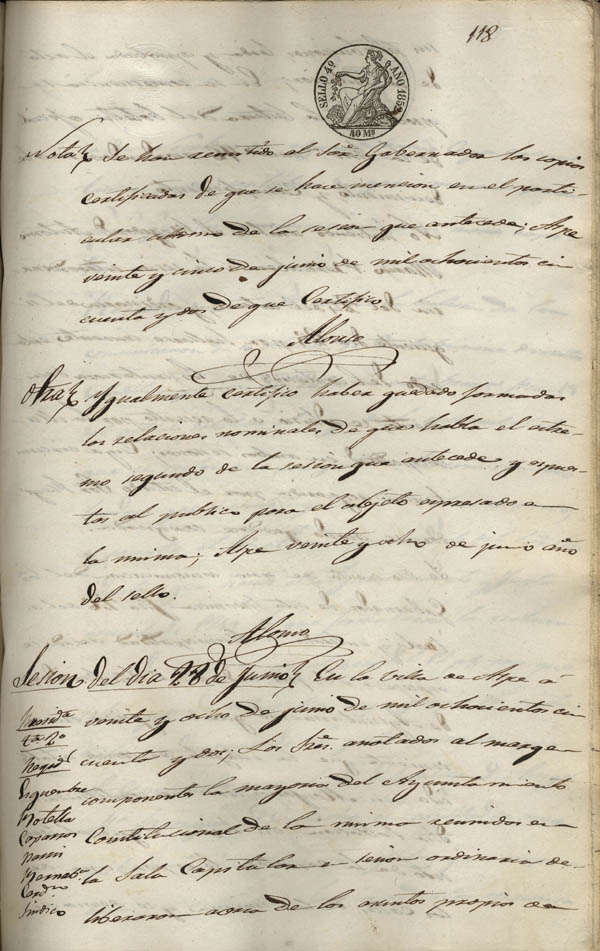 118
SELLO 4º AÑO 1852
40 Ms
Nota Se han remitido al Sor. Gobernador las copias
certificadas de que se hace mencion en el parti-
cular ultimo de la sesion que antecede; Aspe
veinte y cinco de junio de mil ochocientos cin
cuenta y dos de que Certifico.
Alonso
Otra Ygualmente certifico haber quedado formadas
las relaciones nominales de que habla el estre-
mo segundo de la sesion que antecede y espues-
tas al publico para el objeto espresado en
la misma; Aspe veinte y ocho de junio año
del sello.
Alonso
Sesion del dia 28 de Junio En la villa de Aspe á
veinte y ocho de junio de mil ochocientos cin
cuenta y dos; Los Sres. anotados al margen
componentes la mayoria del Ayuntamiento
Constitucional de la misma reunidos en
la Sala Capitular en sesion ordinaria de-
liberaron acerca de los asuntos propios de
Presidte.
Regid.
Esquembre
Botella
Caparros
Bernabe
Sindico